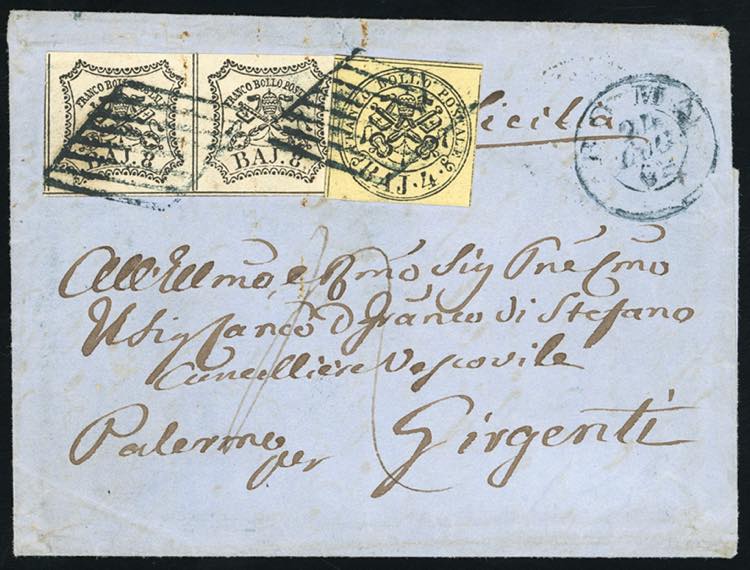 FRANCO BOLLO POSTALE
BAJ. 8
FRANCO BOLLO POSTALE
BAJ. 8
BOLLO POSTALE
BAJ. 4.
Sicilia
ROMA
All'Illmo e Rmo Sig Pne Cmo
Il Sig Canco D. Franco Di Stefano
Cancelliere Vescovile
Palermo per Girgenti